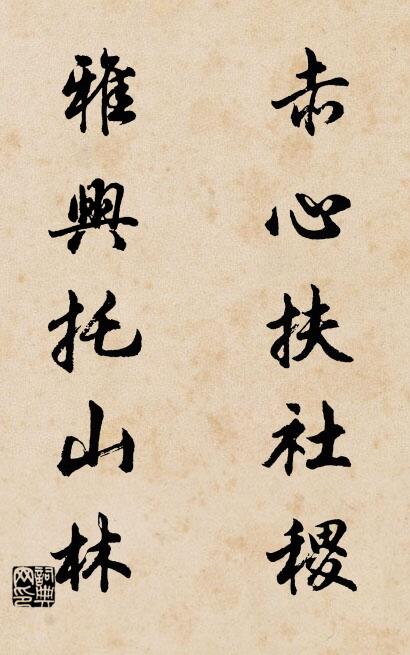 赤心扶社稷
雅興托山林
詞典网印